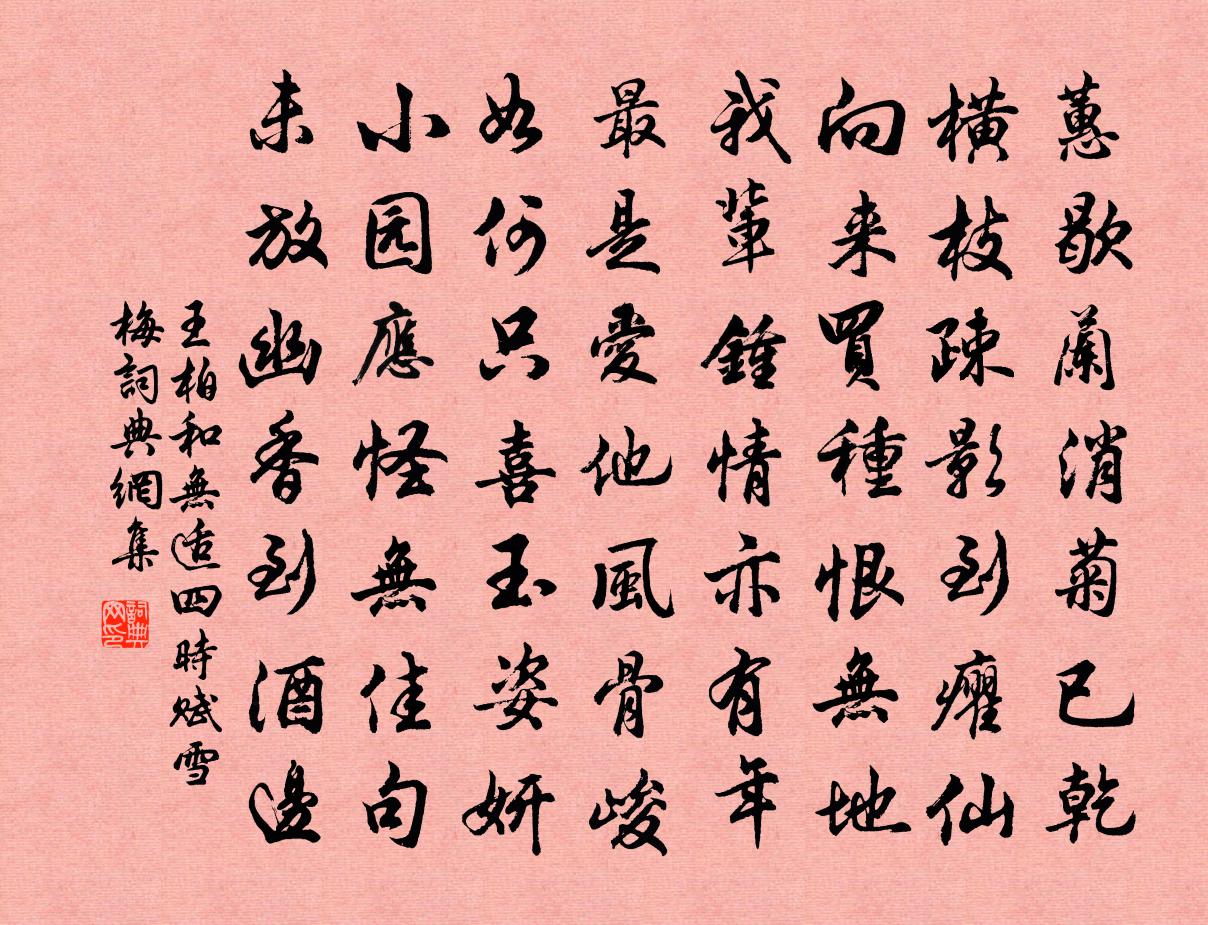 蕙歇蘭消菊已乾
橫枝疎影到癯仙
向来買種恨無地
我輩鍾情亦有年
最是愛他風骨峻
如何只喜玉姿妍
小园應怪無佳句
未放幽香到酒邊
王柏和無适四時赋雪
梅詞典網集
詞典网印